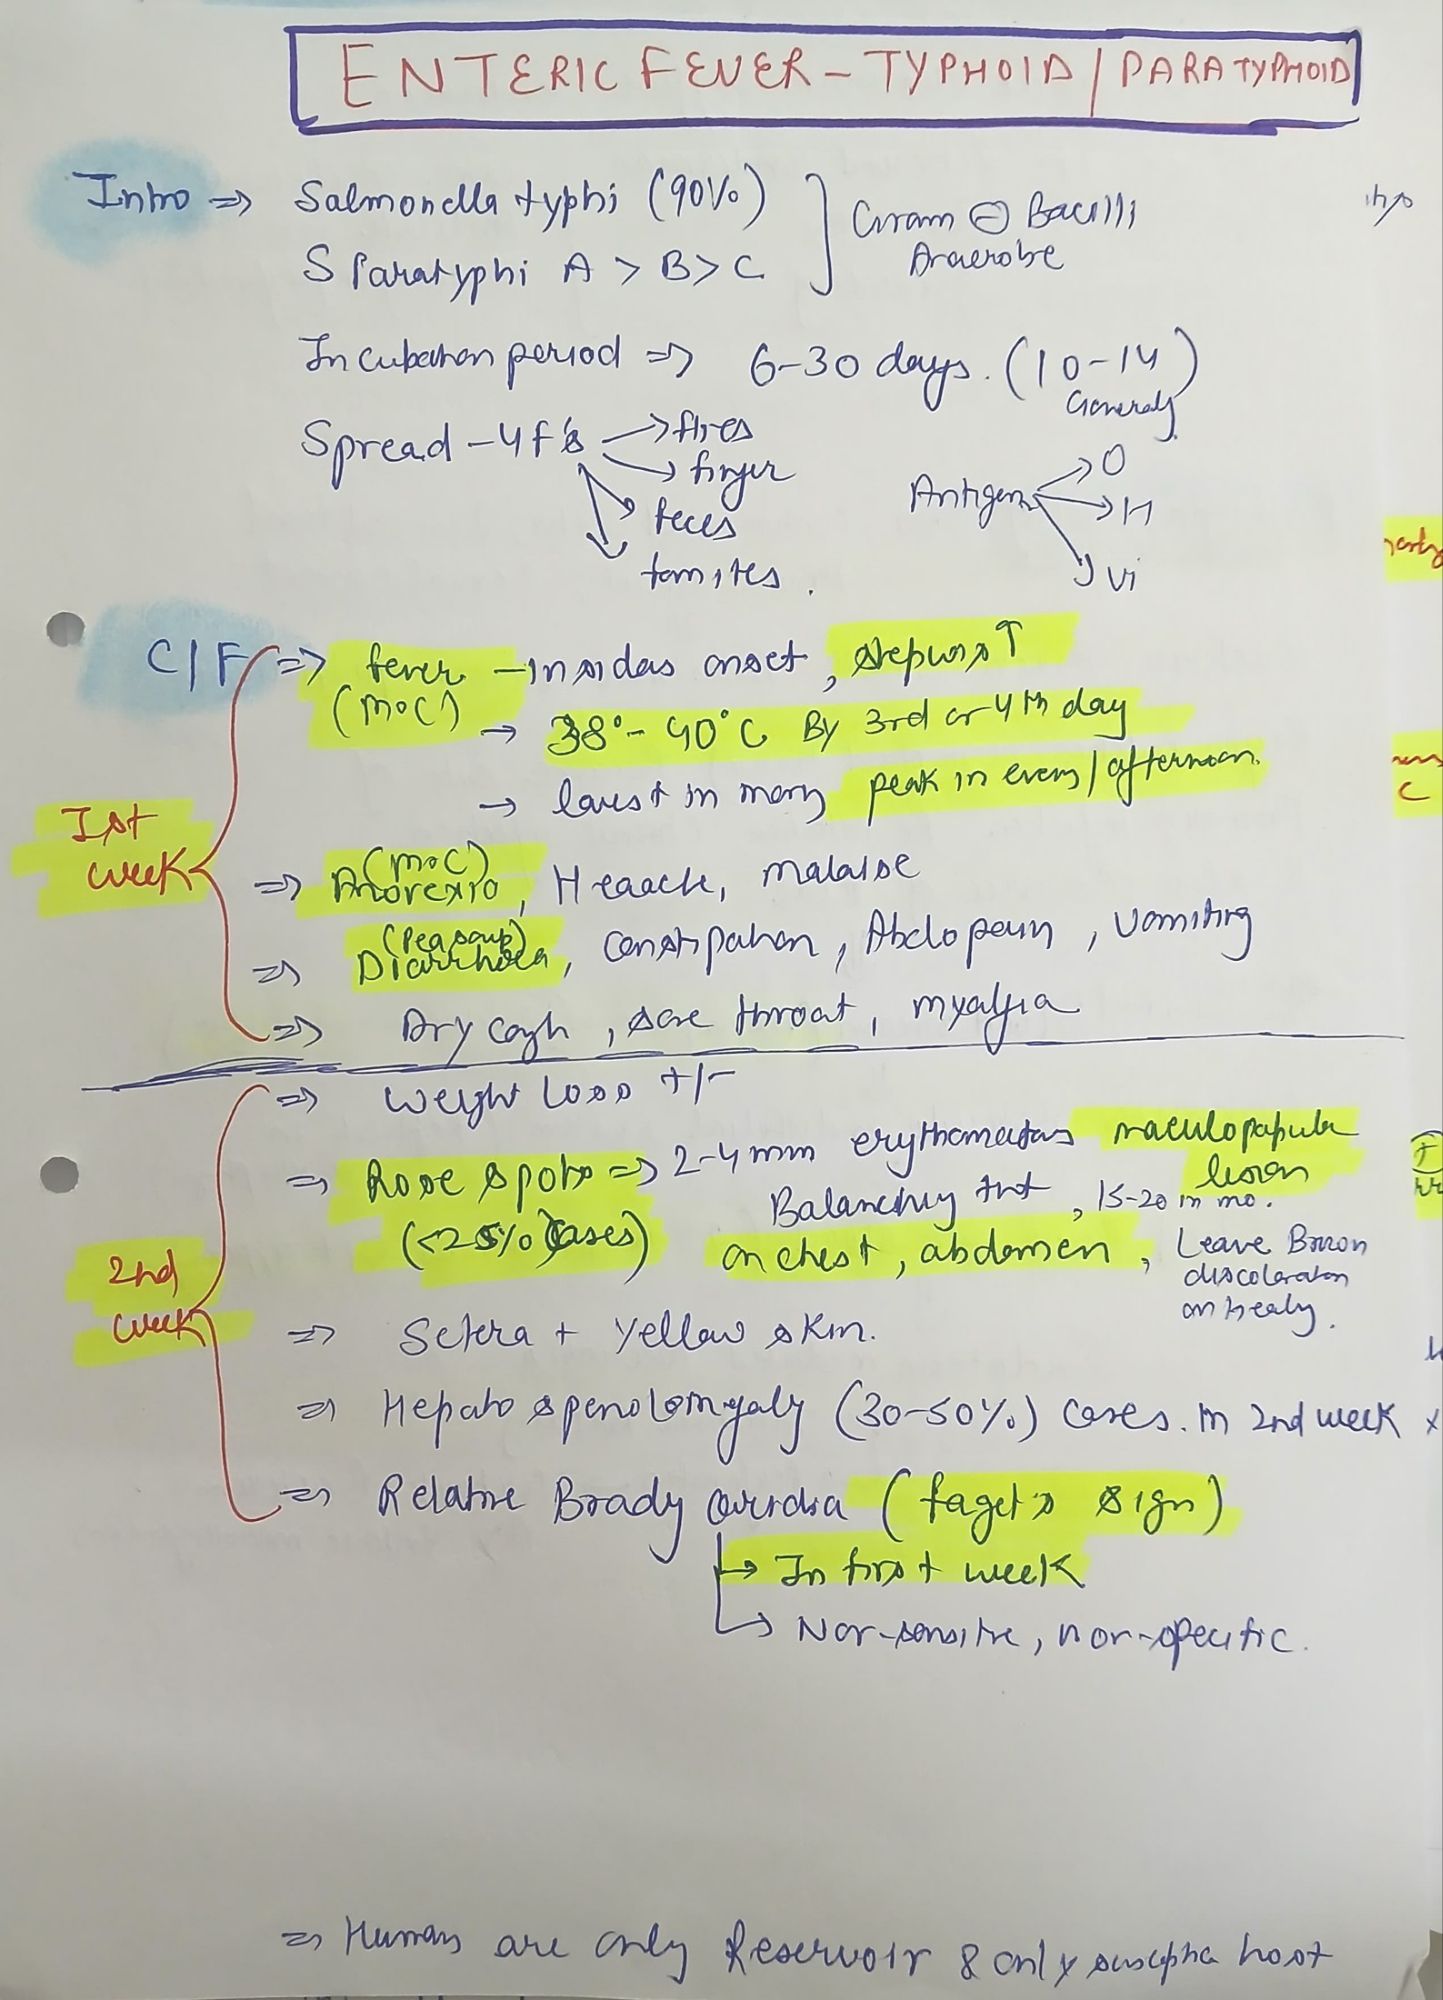 ENTERIC FEVER - TYPHOID / PARATYPHOID
Intro => Salmonella typhi (90%)
S Paratyphi A > B > C
Gram ⊖ Bacilli
Anaerobe
Incubation period => 6-30 days. (10-14)
Generally
Spread - 4 F's → flies
→ finger
→ feces
→ fomites.
Antigens → O
→ H
→ Vi
C/F => fever - insidas onset, stepwis ↑
(MOC) → 38° - 40°C By 3rd or 4th day
→ lowest in morng peak in eveng / afternoon.
Ist
week
(MOC)
=> Anorexia, Heaache, malaise
(Pea soup)
=> Diarrhoea, constipation, Abdo pain, vomiting
=> Dry cough, sore throat, myalgia
=> Weight Loss +/-
=> Rose spots => 2-4mm erythematous maculopapular
lesion
(<25% cases) Balanching tht, 15-20 in no.
on chest, abdomen, Leave Brown
discoloration
on healing.
2nd
week
=> Sclera + Yellow skin.
=> Hepato splenomegaly (30-50%) cases. in 2nd week
=> Relative Brady cardia (faget's sign)
→ In first week
→ Non-sensitive, non-specific.
=> Humans are only Reservoir & only suscepta host